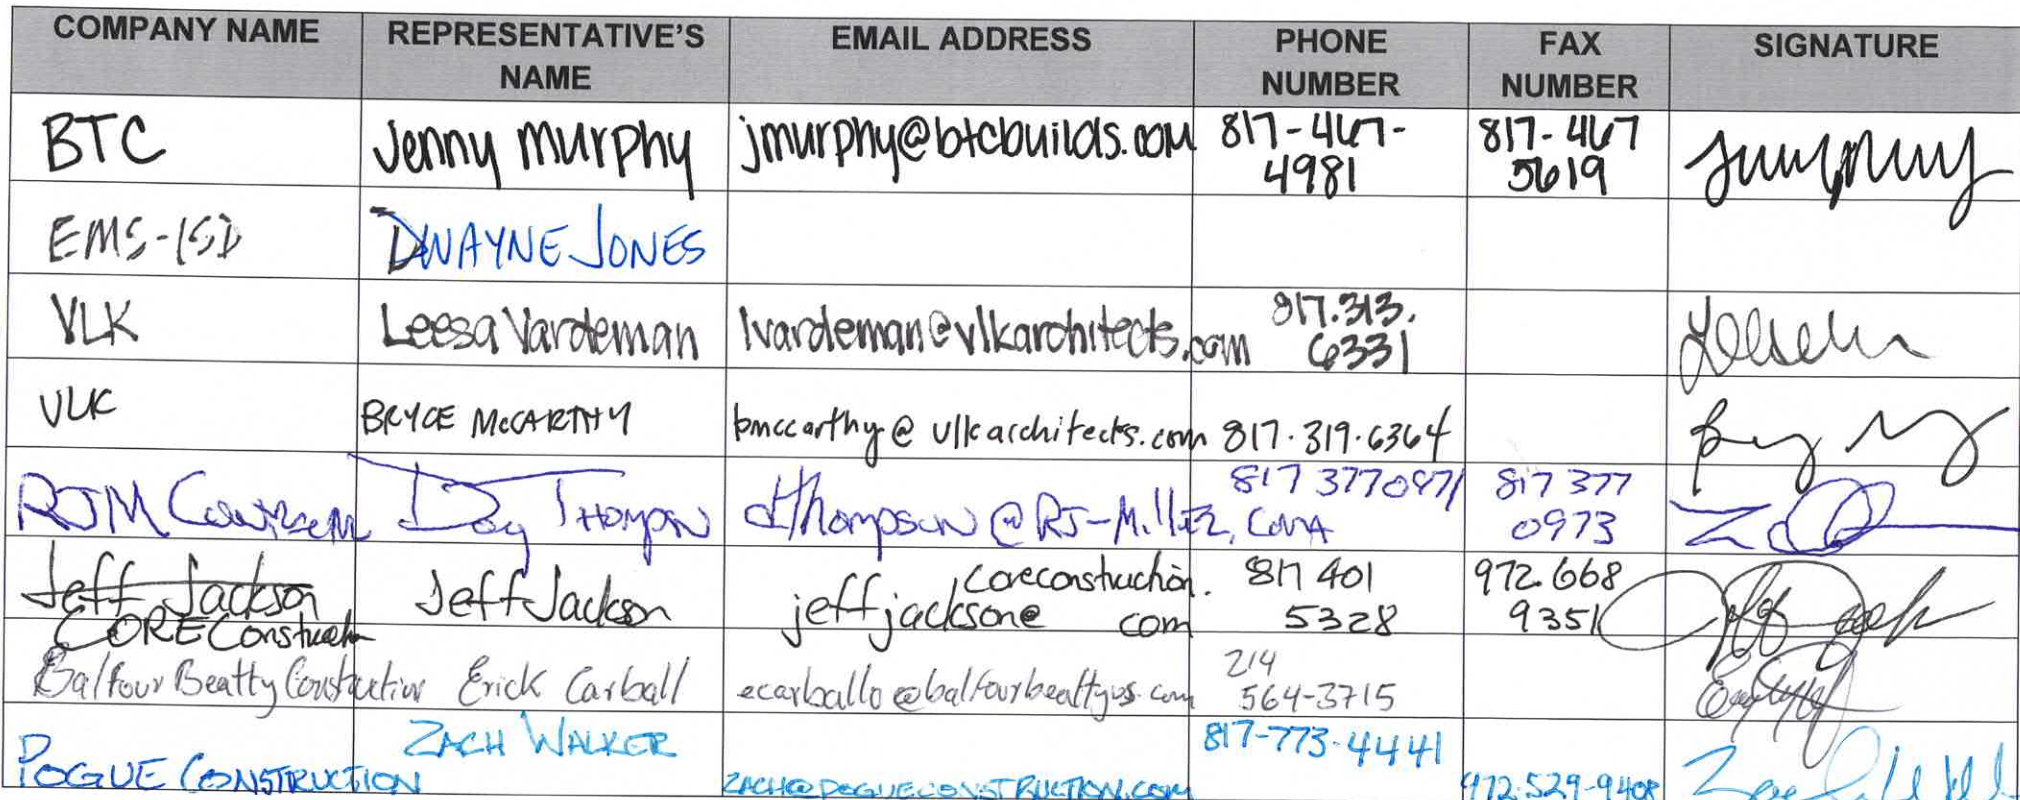 COMPANY NAME REPRESENTATIVE'S NAME EMAIL ADDRESS PHONE NUMBER FAX NUMBER SIGNATURE
BTC Jenny Murphy jmurphy@btcbuilds.com 817-467-4981 817-467 5619
EMS-ISD DWAYNE JONES
VLK Leesa Vardeman lvardeman@vlkarchitects.com 817.313.6331
VLK BRYCE McCARTHY bmccarthy@vlkarchitects.com 817.319.6364
RJM Doug Thompson dthompson@RJ-Miller.com 817 3770971 817 377 0973
Jeff Jackson
CORE Construction Jeff Jackson jeffjackson@coreconstruction.com 817 401 5328 972.668 9351
Balfour Beatty Construction Erick Carball ecarballo@balfourbeattyus.com 214 564-3715
POGUE CONSTRUCTION ZACH WALKER ZACH@POGUECONSTRUCTION.COM 817-773-4441 972.529-9408